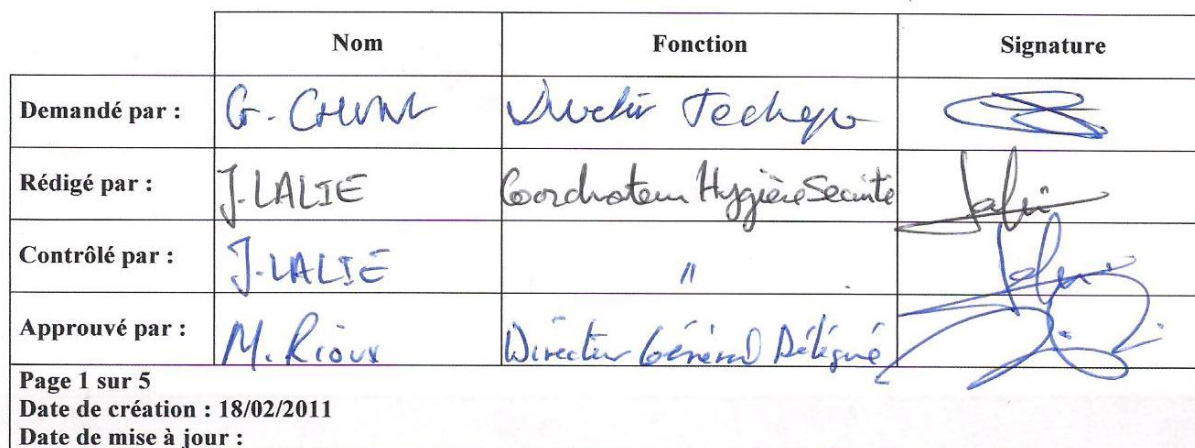 Nom Fonction Signature
Demandé par : G.
Rédigé par : J. LALIE Coordinateur Hygiène Sécurité
Contrôlé par : J. LALIE "
Approuvé par : M. Rioux Directeur Général Délégué
Page 1 sur 5
Date de création : 18/02/2011
Date de mise à jour :